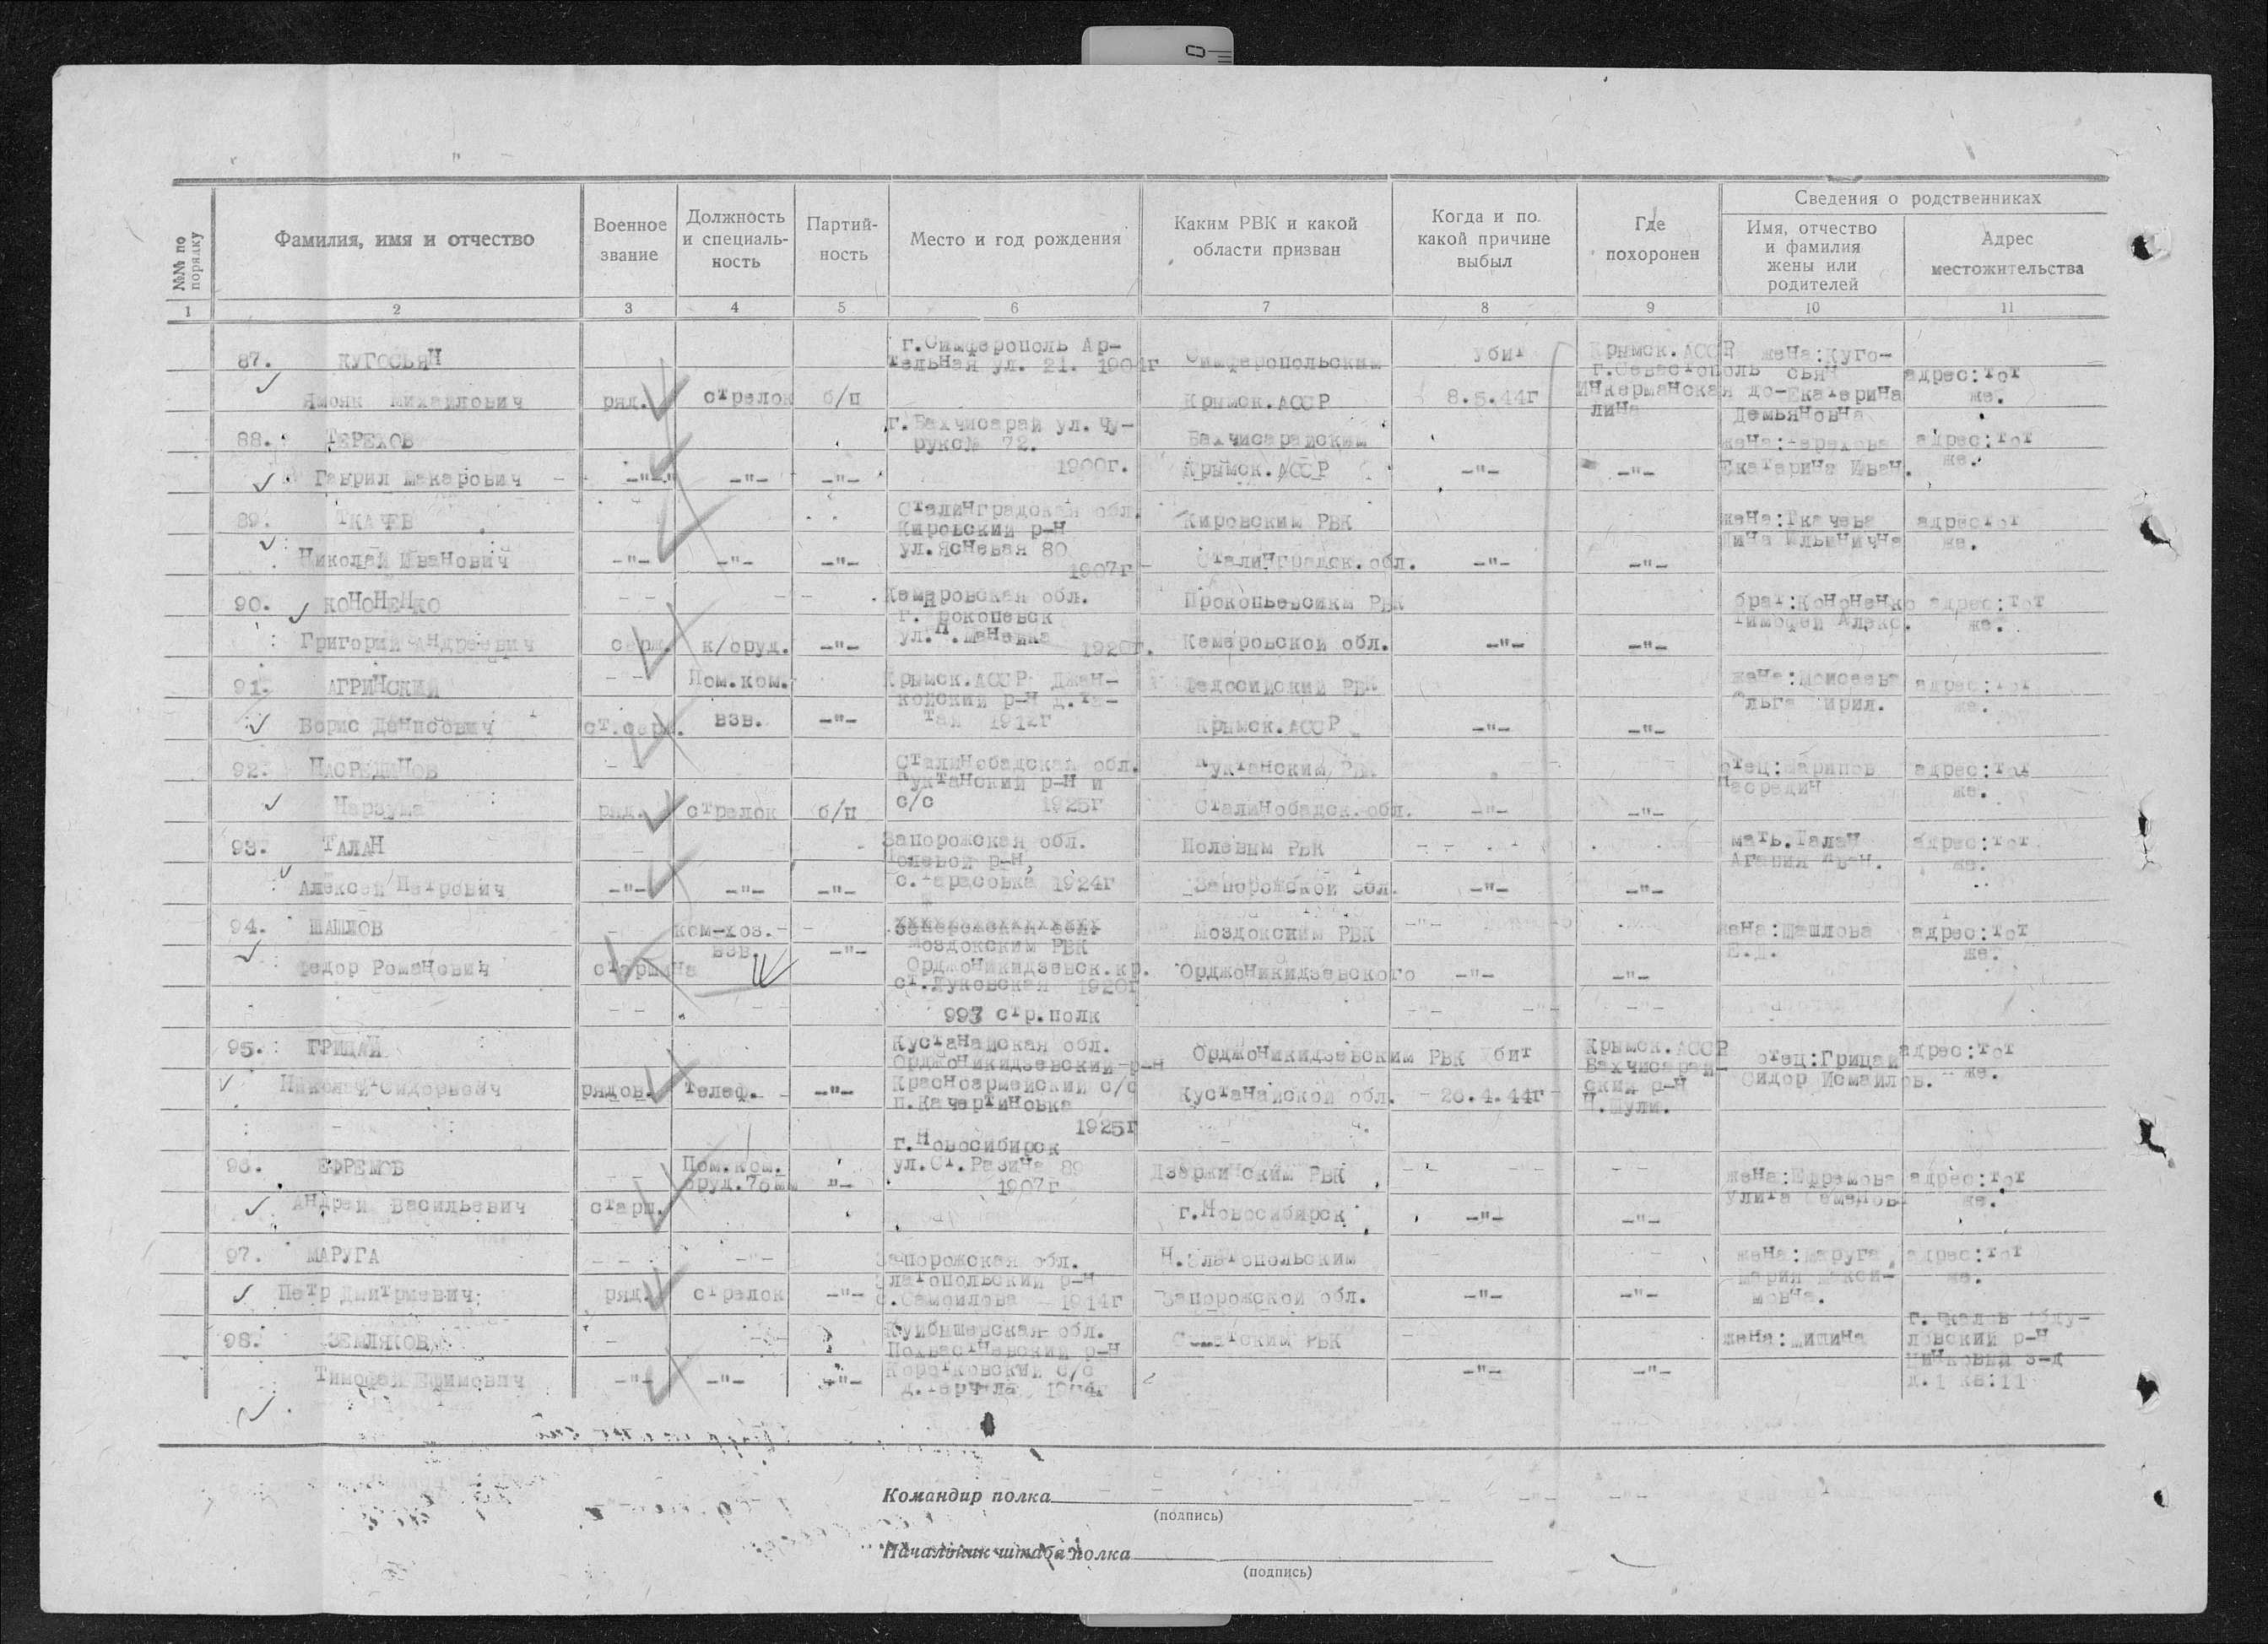 №№ по порядку
Фамилия, имя и отчество
Военное звание
Должность и специаль-ность
Партий-ность
Место и год рождения
Каким РВК и какой области призван
Когда и по какой причине выбыл
Где похоронен
Сведения о родственниках
Имя, отчество и фамилия жены или родителей
Адрес местожительства
1 2 3 4 5 6 7 8 9 10 11
87. КУГОСЬЯН
Михайлович
ряд. стрелок б/п
г.Симферополь Ар-
тельная ул. 21. 1904г
Симферопольским
Крымск.АССР
Убит
8.5.44г
Крымск.АССР
г.Севастополь
Инкерманская до-
лина
жена:Куго-
сьян
Екатерина
Демьяновна
адрес:тот
же.
88. ТЕРЕХОВ
Гаврил Макарович
-"- -"- -"-
г.Бахчисарай ул.Чу-
рукс№ 72.
1900г.
Бахчисарайским
Крымск.АССР
-"- -"-
жена:Терехова
Екатерина Иван.
адрес:тот
же.
89. ТКАЧЕВ
Николай Иванович
-"- -"- -"-
Сталинградская обл.
Кировский р-н
ул.Ясневая 80
1907г
Кировским РВК
Сталинградск.обл.
-"- -"-
жена:Ткачева
Ильинична
адрестот
же.
90. КОНОНЕНКО
Григорий Андреевич
серж. к/оруд. -"-
Кемеровская обл.
г.Прокопевск
1920г.
Прокопьевсикм РВК
Кемеровской обл.
-"- -"-
брат:Кононенко
Тимофей Алекс.
адрес:тот
же.
91. АГРИНСКИЙ
Борис Денисович
ст.серж.
Пом.ком.
взв. -"-
Крымск.АССР Джан-
койский р-н д.та-
1912г
Федосийский РВК
Крымск.АССР
-"- -"-
жена:Моисеева
Ольга Кирил.
адрес:тот
же.
92. НАСРЕДИНОВ
Нарзума
ряд. стрелок б/п
Сталинобадская обл.
р-н и
с/с 1925г
РВК
Сталинобадск.обл.
-"- -"-
отец:Шарипов
Насредин
адрес:тот
же.
93. ТАЛАН
Алексей Петрович
-"- -"- -"-
Запорожская обл.
Полевой р-н,
с.Тарасовка 1924г
Полевым РВК
Запорожской обл.
-"- -"-
мать.Талан
Иван.
адрес:тот
же.
94. ШАШЛОВ
Федор Романович
старшина
ком-хоз.
взв. -"-
Моздокским РВК
Орджоникидзевск.кр.
ст.Луковская 1920г
Моздокским РВК
Орджоникидзевского
-"- -"-
жена:Шашлова
Е.Д.
адрес:тот
же.
993 стр.полк
95. ГРИЦАЙ
Николай Сидорвеич
рядов. телеф. -"-
Кустанайская обл.
Орджоникидзевский-р-н
Красноармейский с/с
1925г
Орджоникидзевским РВК
Кустанайской обл.
Убит
26.4.44г
Крымск.АССР
Бахчисарай-
ский р-н
Н.Шули.
отец:Грицай
Сидор Исмаилов.
адрес:тот
же.
96. ЕФРЕМОВ
Андрей Васильевич
старш.
Пом.ком.
Оруд.76мм "-
г.Новосибирск
ул.Ст.Разина 89
1907г
Дзержинским РВК
г.Новосибирск
-"- -"-
жена:Ефремова
Улита
адрес:тот
же.
97. МАРУГА
Петр Дмитрмевич
ряд. стрелок -"-
Запорожская обл.
Златопольский р-н
с.Самоилова 1914г
Н.Златопольским
Запорожской обл.
-"- -"-
жена:Маруга
Мария Макси-
мовна.
адрес:тот
же.
98. ЗЕМЛЯКОВ
Тимофей Ефимович
-"- -"- -"-
Куйбышевская обл.
р-н
Коротковский с/с
1904г
РВК
-"- -"-
жена:Шипина
г.Чкалов
р-н
з-д
д.1 кв:11
Командир полка
(подпись)
Начальник штаба полка
(подпись)